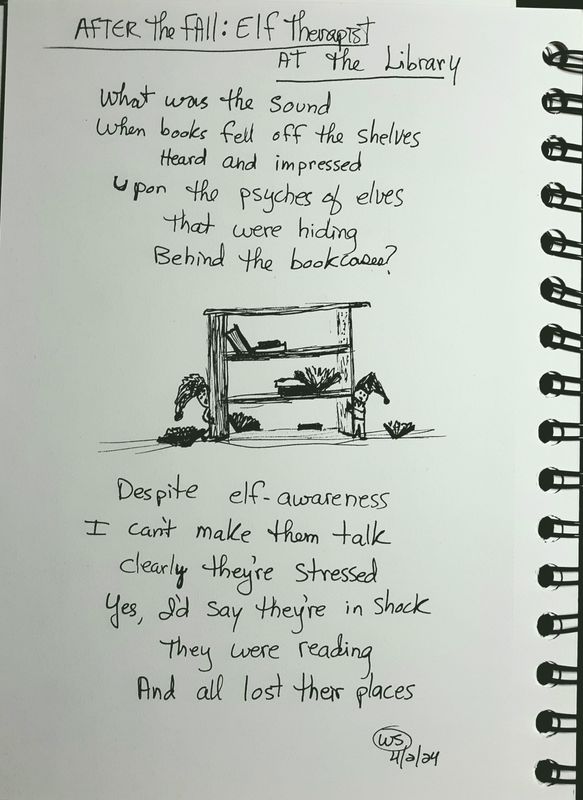 AFTER the FAll: Elf Therapist
AT the Library
What was the sound
When books fell off the shelves
Heard and impressed
Upon the psyches of elves
that were hiding
Behind the bookcases?
Despite elf-awareness
I can't make them talk
clearly they're stressed
Yes, I'd say they're in shock
They were reading
And all lost their places
WS
4/2/24